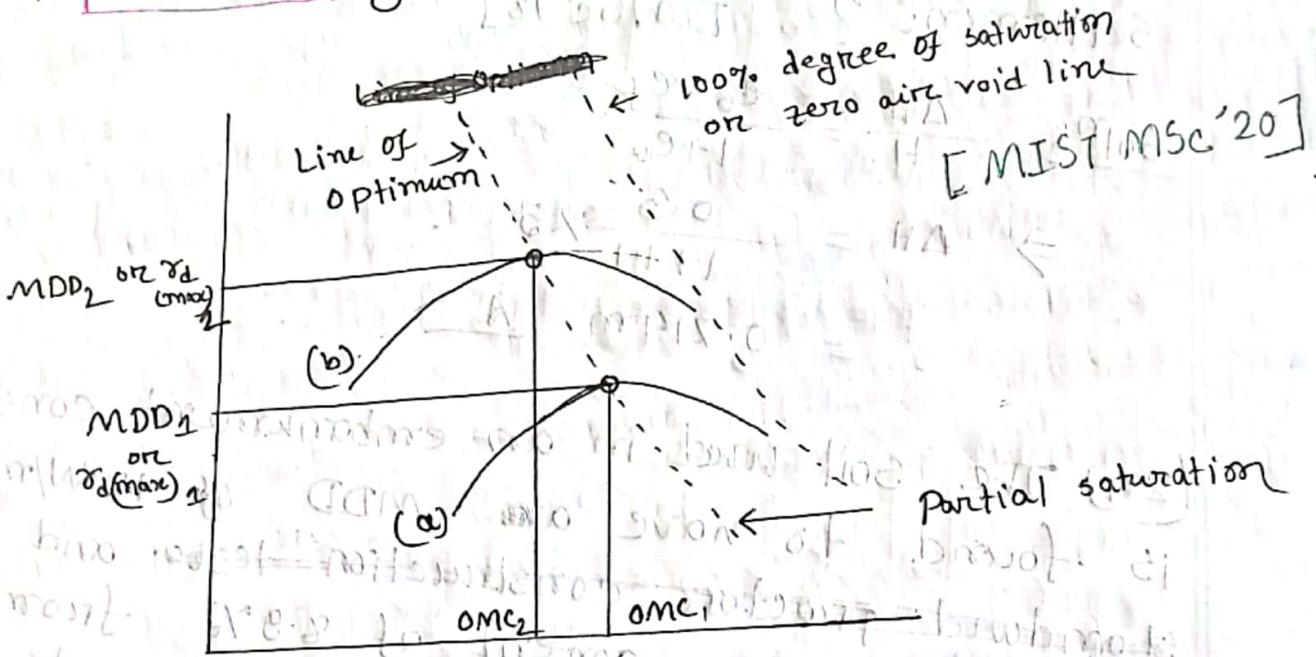 100% degree of saturation
or zero air void line
[MIST MSc '20]
Line of
optimum
MDD₂ or γd
(max)
2
(b)
MDD₁
or
γd(max) 1
(a)
Partial saturation
OMC₂
OMC₁